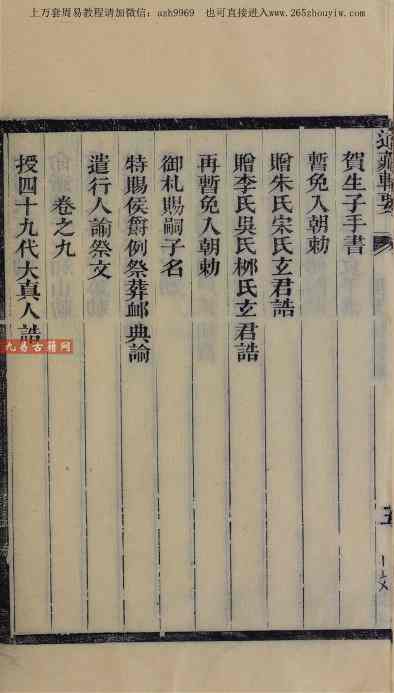 上万套周易教程请加微信：ash9969 也可直接进入www.265zhouyiw.com
道藏輯要
賀生子手書
暫免入朝勅
贈朱氏宋氏玄君誥
贈李氏吳氏栁氏玄君誥
再暫免入朝勅
御札賜嗣子名
特賜侯爵例祭葬卹典諭
遣行人諭祭文
卷之九
授四十九代大真人誥
九易古籍网